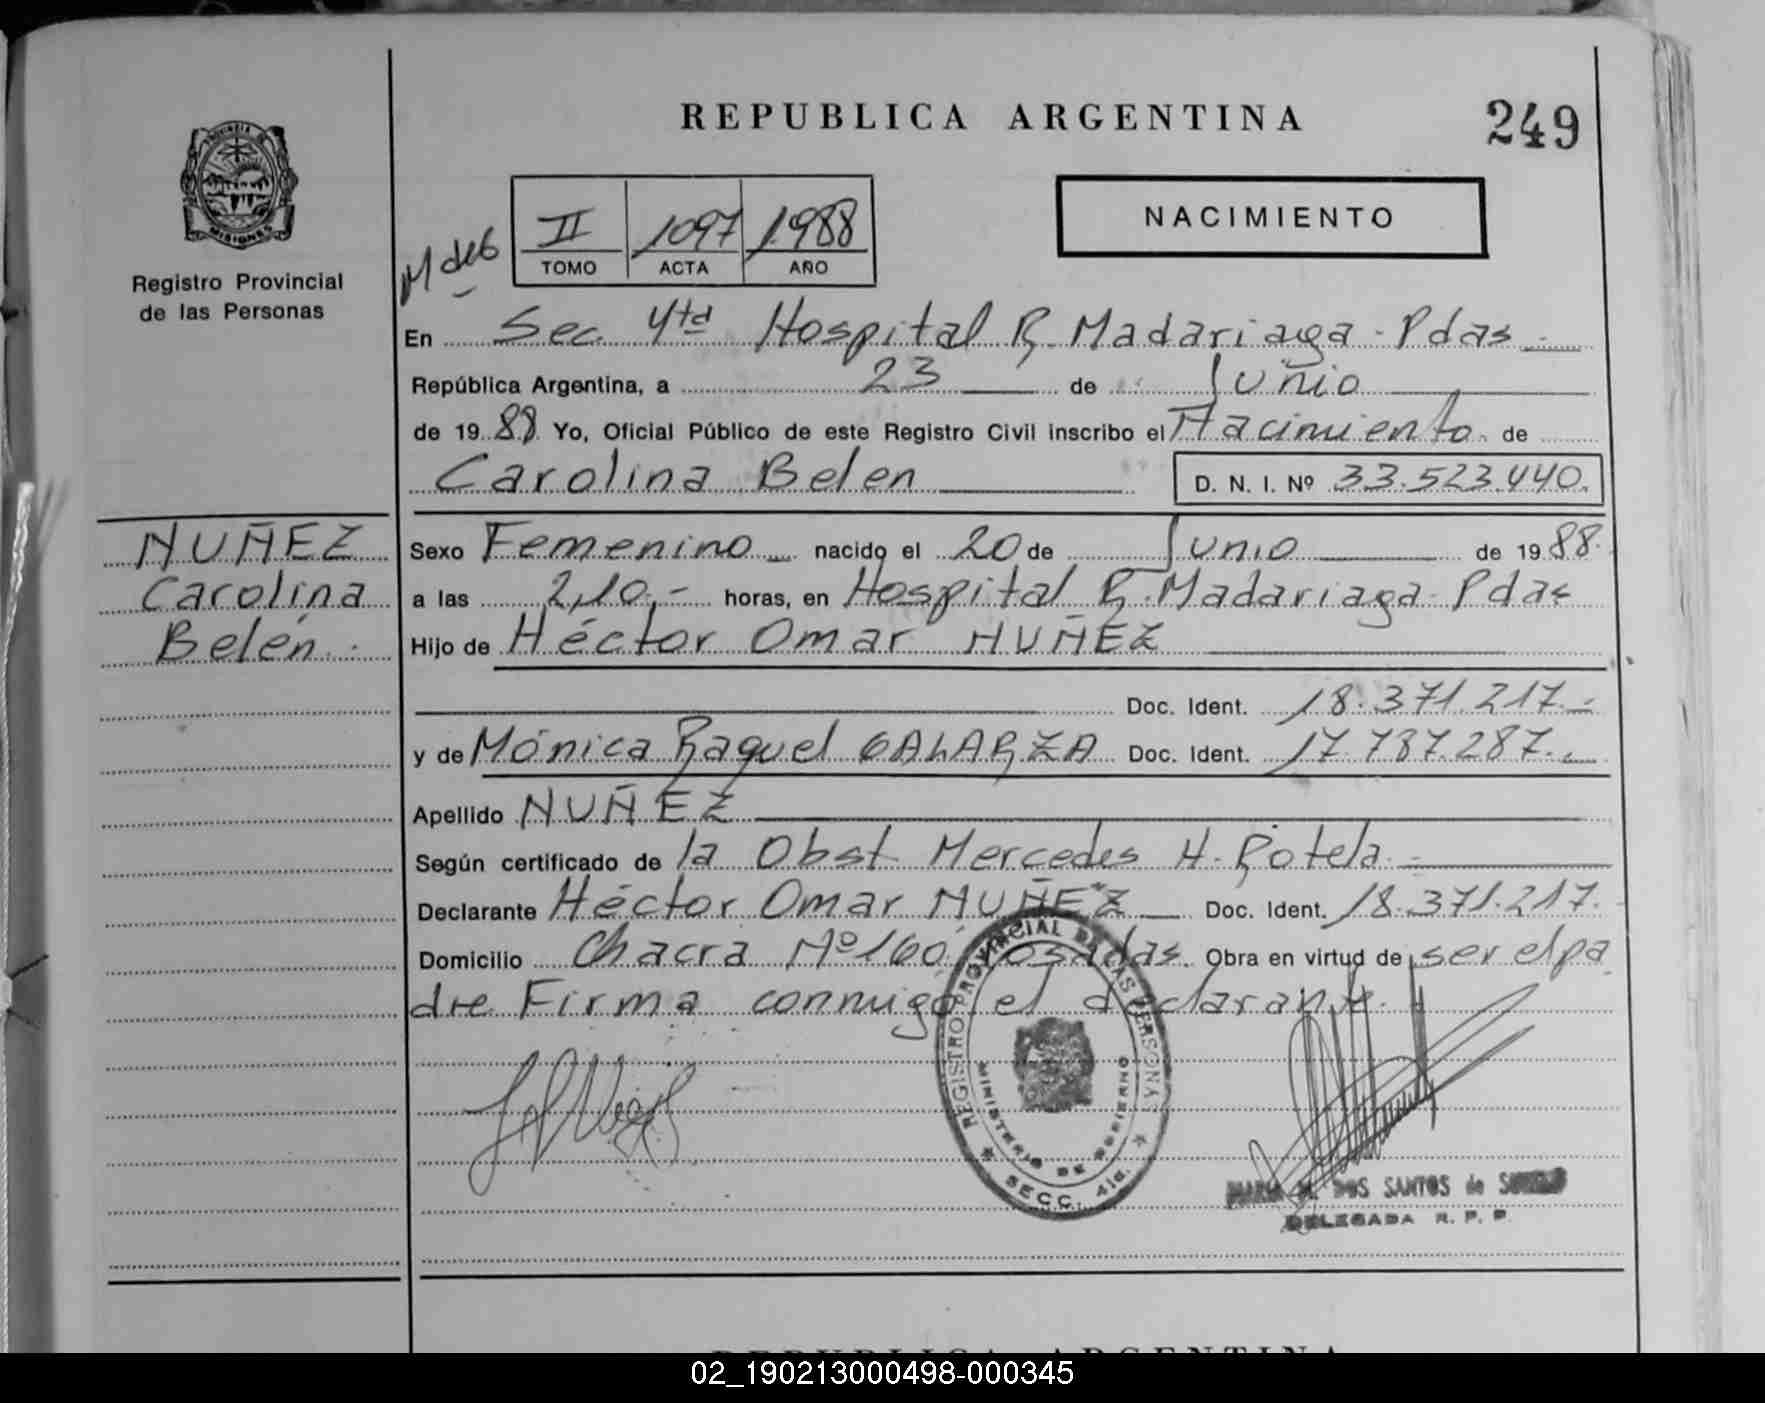 REPUBLICA ARGENTINA
249
PROVINCIA DE
MISIONES
Registro Provincial
de las Personas
NACIMIENTO
II 1097 1.988
TOMO ACTA AÑO
En Sec. 4ta Hospital R. Madariaga - Pdas -
República Argentina, a 23 de Junio
de 1988 Yo, Oficial Público de este Registro Civil inscribo el Nacimiento de
Carolina Belen D. N. I. Nº 33.523.440.
NUÑEZ
Carolina
Belén.
Sexo Femenino nacido el 20 de Junio de 1988.
a las 2,10.- horas, en Hospital R. Madariaga - Pdas
Hijo de Héctor Omar NUÑEZ
Doc. Ident. 18.371.217.-
y de Mónica Raquel GALARZA Doc. Ident. 17.787.287.-
Apellido NUÑEZ
Según certificado de la Obst. Mercedes H. Rotela.-
Declarante Héctor Omar NUÑEZ Doc. Ident. 18.371.217.
Domicilio Chacra Nº 160, Posadas. Obra en virtud de ser el pa
dre Firma conmigo el declarante.
REGISTRO PROVINCIAL DE LAS PERSONAS
MINISTERIO DE GOBIERNO
SECC. 4ta.
DOS SANTOS de
DELEGADA R. P. P.
REPUBLICA ARGENTINA
02_190213000498-000345